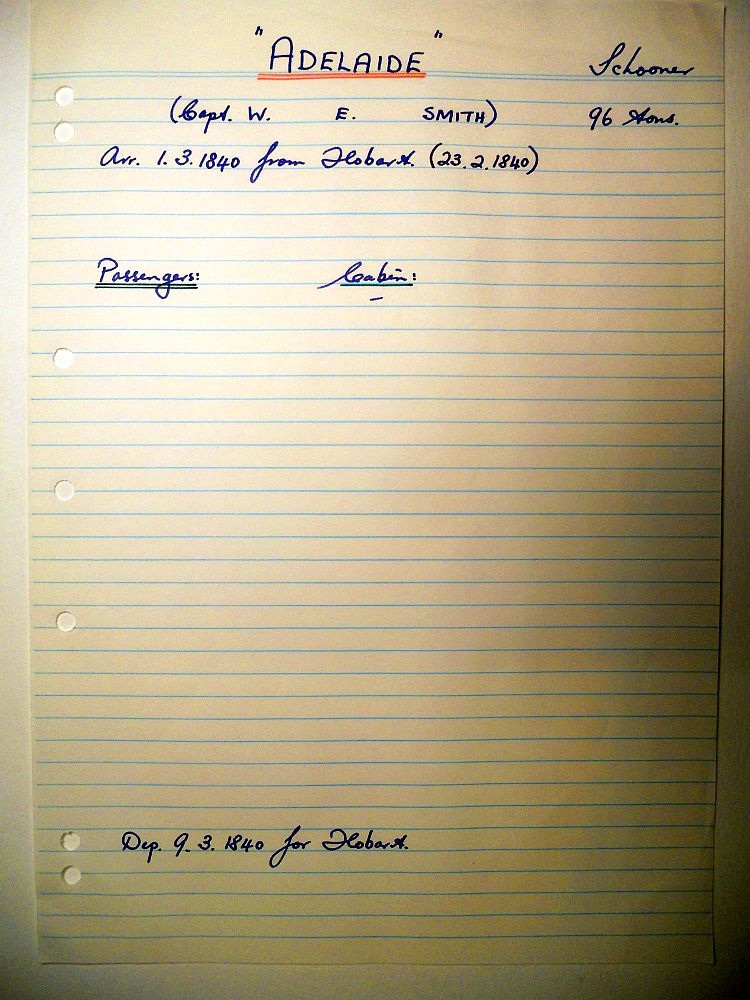 "ADELAIDE" Schooner
(Capt. W. E. SMITH) 96 tons.
Arr. 1.3.1840 from Hobart. (23.2.1840)
Passengers: Cabin:
–
Dep. 9.3.1840 for Hobart.